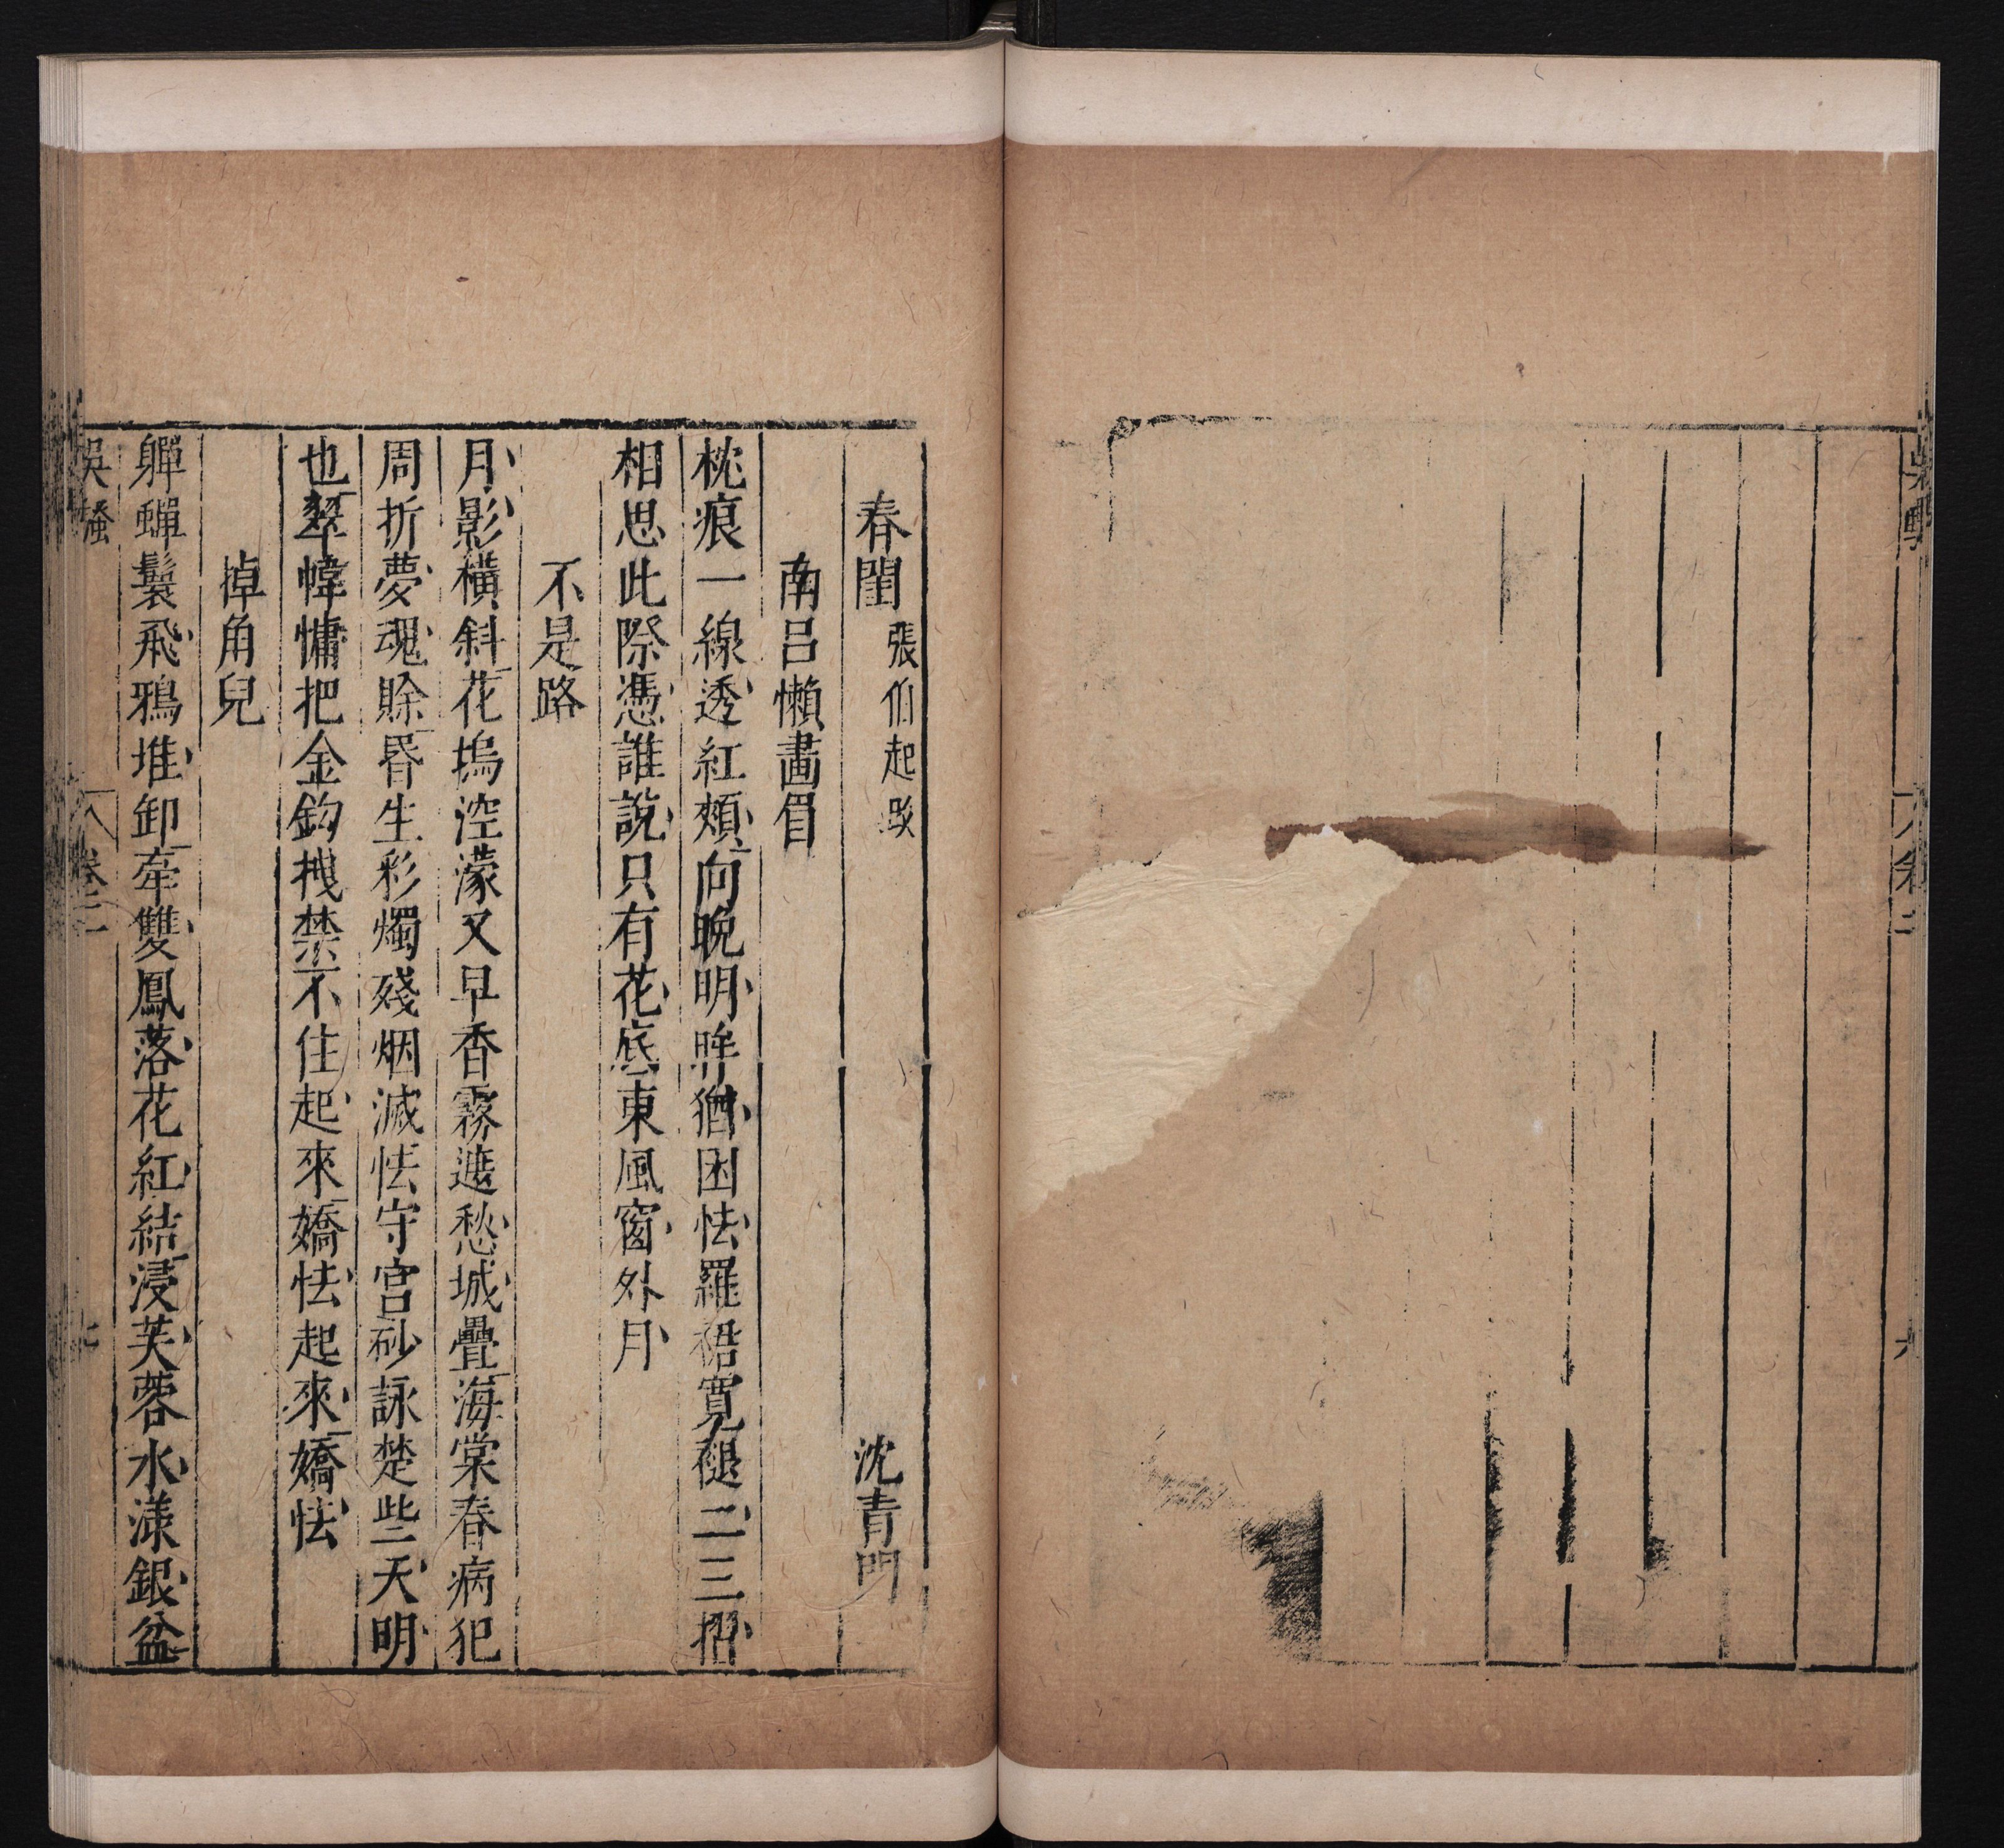 吳騷
卷二
春閨 張伯起改 沈青門
南呂懶畫眉
枕痕一線透紅頰向晚明眸猶困怯羅裙寬褪二三摺
相思此際憑誰說只有花底東風窗外月
不是路
月影橫斜花塢涳濛又早香霧遮愁城疊海棠春病犯
周折夢魂賒昏生彩燭殘烟滅怯守宮砂詠楚些天明
也翠幃慵把金鈎拽禁不住起來嬌怯起來嬌怯
掉角兒
軃蟬鬟飛鴉堆卸牽雙鳳落花紅結浸芙蓉水漾銀盆
吳騷
卷二